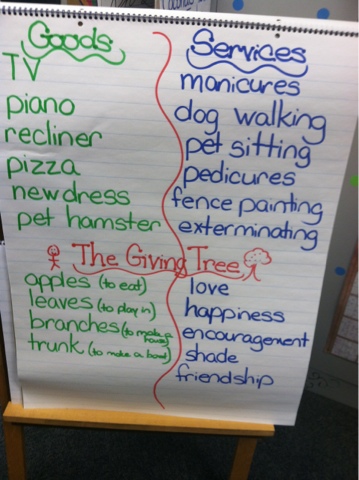 Goods
TV
piano
recliner
pizza
new dress
pet hamster
Services
manicures
dog walking
pet sitting
pedicures
fence painting
exterminating
The Giving Tree
apples (to eat)
leaves (to play in)
branches (to make a house)
trunk (to make a boat)
love
happiness
encouragement
shade
friendship